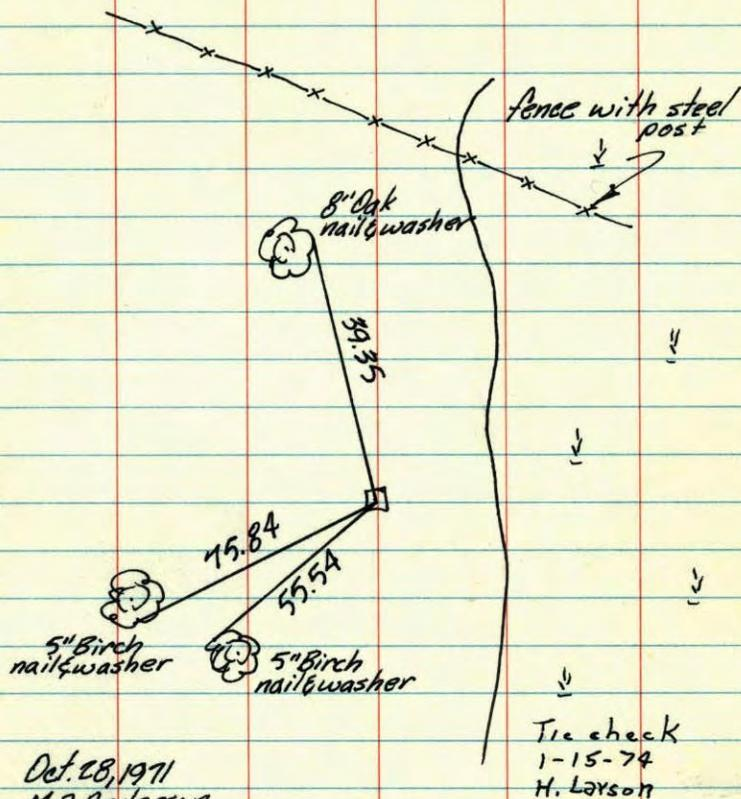 fence with steel
post
8" Oak
nail & washer
39.35
75.84
55.54
5" Birch
nail & washer
5" Birch
nail & washer
Tie check
1-15-74
H. Larson
Oct. 28, 1971